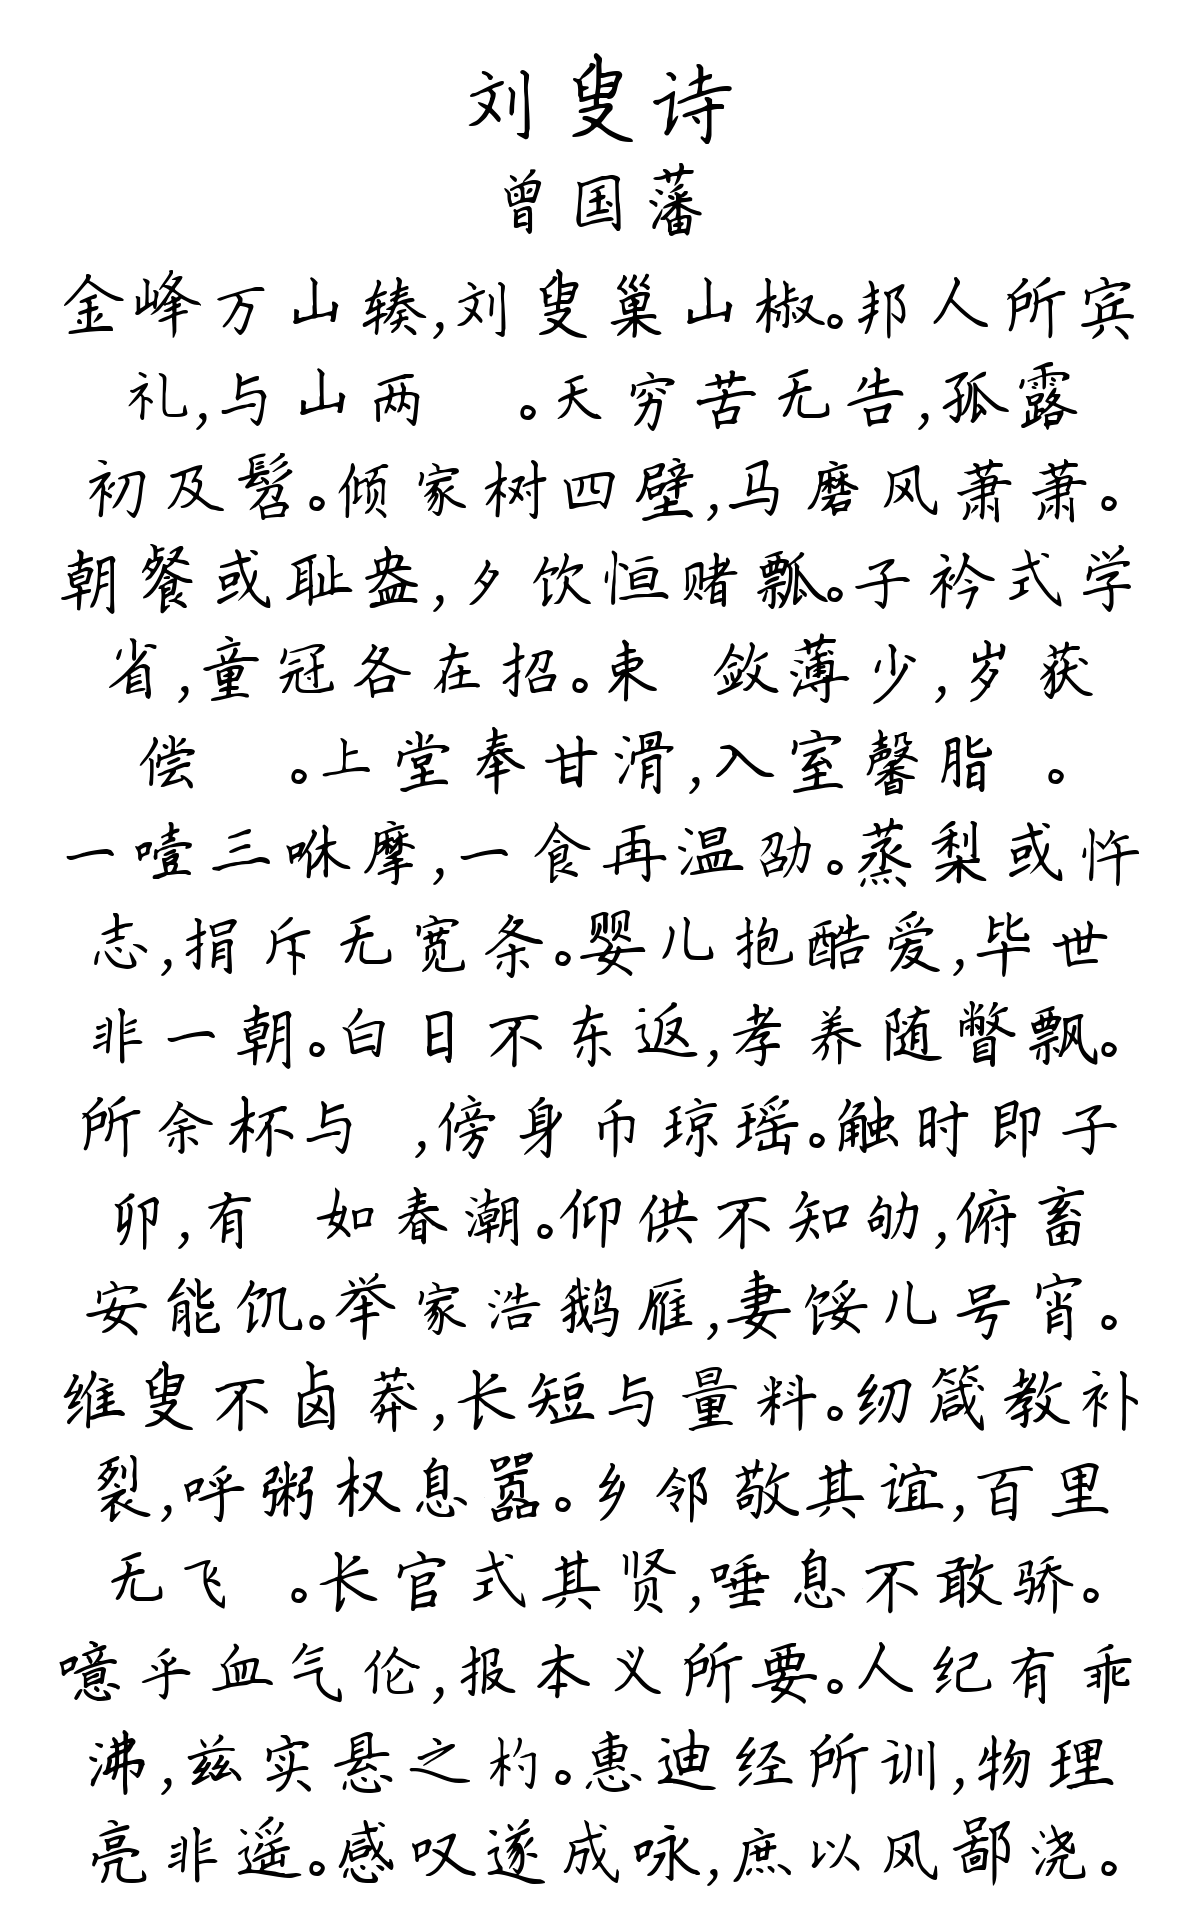 刘叟诗
曾国藩
金峰万山辏,刘叟巢山椒。邦人所宾
礼,与山两 。天穷苦无告,孤露
初及髫。倾家树四壁,马磨风萧萧。
朝餐或耻盎,夕饮恒赌瓢。子衿式学
省,童冠各在招。束 敛薄少,岁获
偿 。上堂奉甘滑,入室馨脂 。
一噎三咻摩,一食再温劭。蒸梨或忤
志,捐斥无宽条。婴儿抱酷爱,毕世
非一朝。白日不东返,孝养随瞥飘。
所余杯与 ,傍身币琼瑶。触时即子
卯,有 如春潮。仰供不知劬,俯畜
安能饥。举家浩鹅雁,妻馁儿号宵。
维叟不卤莽,长短与量料。纫箴教补
裂,呼粥权息嚣。乡邻敬其谊,百里
无飞 。长官式其贤,唾息不敢骄。
噫乎血气伦,报本义所要。人纪有乖
沸,兹实悬之杓。惠迪经所训,物理
亮非遥。感叹遂成咏,庶以风鄙浇。